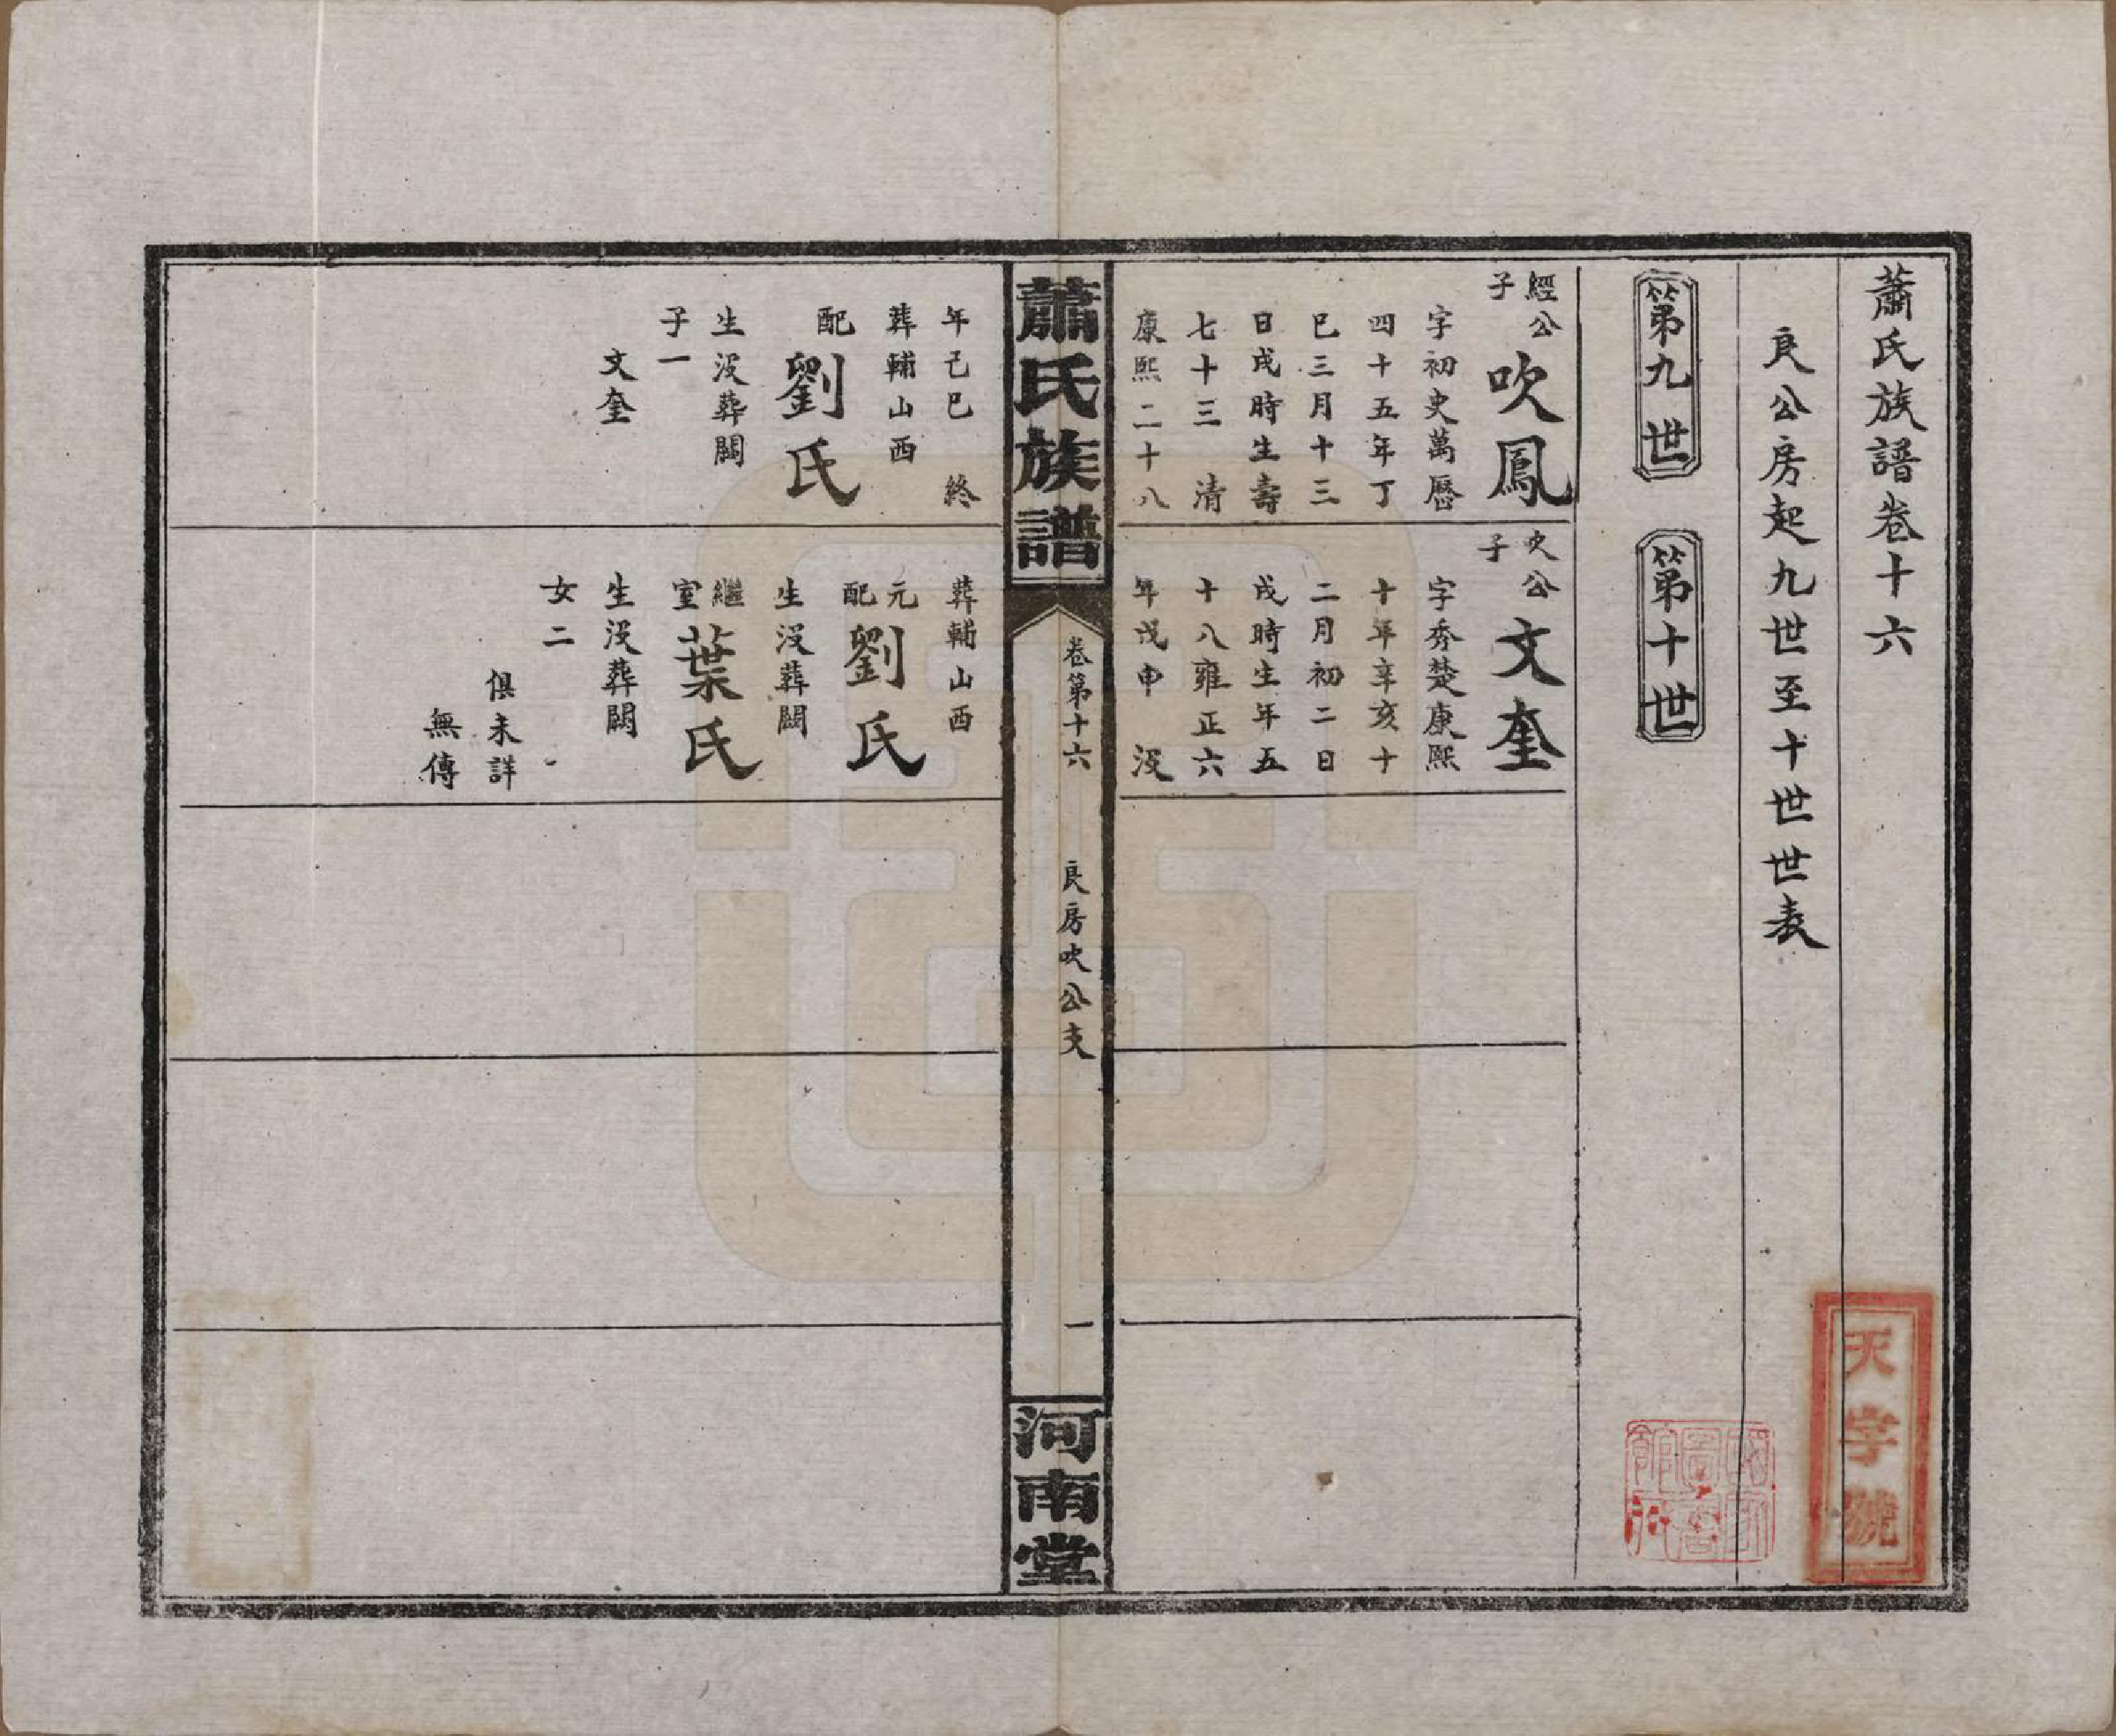 蕭氏族譜卷十六
良公房起九世至十世世表
第九世
第十世
經公
子
吹鳳
字初史萬曆
四十五年丁
巳三月十三
日戌時生壽
七十三 清
康熙二十八
年己巳 終
葬輔山西
配劉氏
生沒葬闕
子一
文奎
吹公
子
文奎
字秀楚康熙
十年辛亥十
二月初二日
戌時生年五
十八雍正六
年戊申 沒
葬輔山西
元配劉氏
生沒葬闕
繼室葉氏
生沒葬闕
女二
俱未詳
無傳
蕭氏族譜
卷第十六
良房吹公支
一
河南堂
天字號